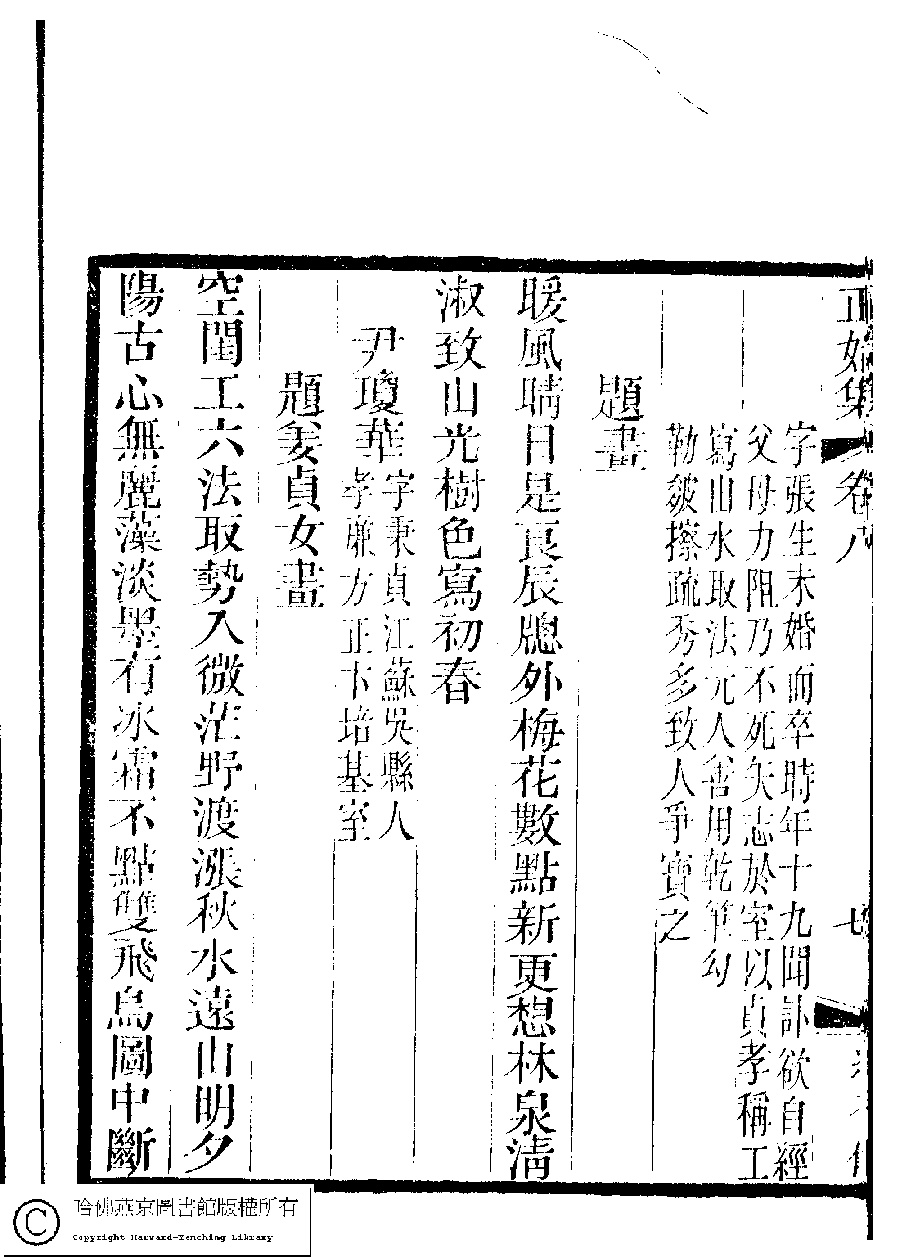 正始集 卷八 七
字張生未婚而卒時年十九聞訃欲自經
父母力阻乃不死矢志於室以貞孝稱工
寫山水取法元人善用乾筆勾
勒皴擦疏秀多致人爭寶之
題畫
暖風晴日是良辰牕外梅花數點新更想林泉淸
淑致山光樹色寫初春
尹瓊華字秉貞江蘇吳縣人
孝廉方正卞培基室
題姜貞女畫
空閨工六法取勢入微茫野渡漲秋水遠山明夕
陽古心無麗藻淡墨有冰霜不點雙飛鳥圖中斷
哈佛燕京圖書館版權所有
Copyright Harvard-Yenching Library